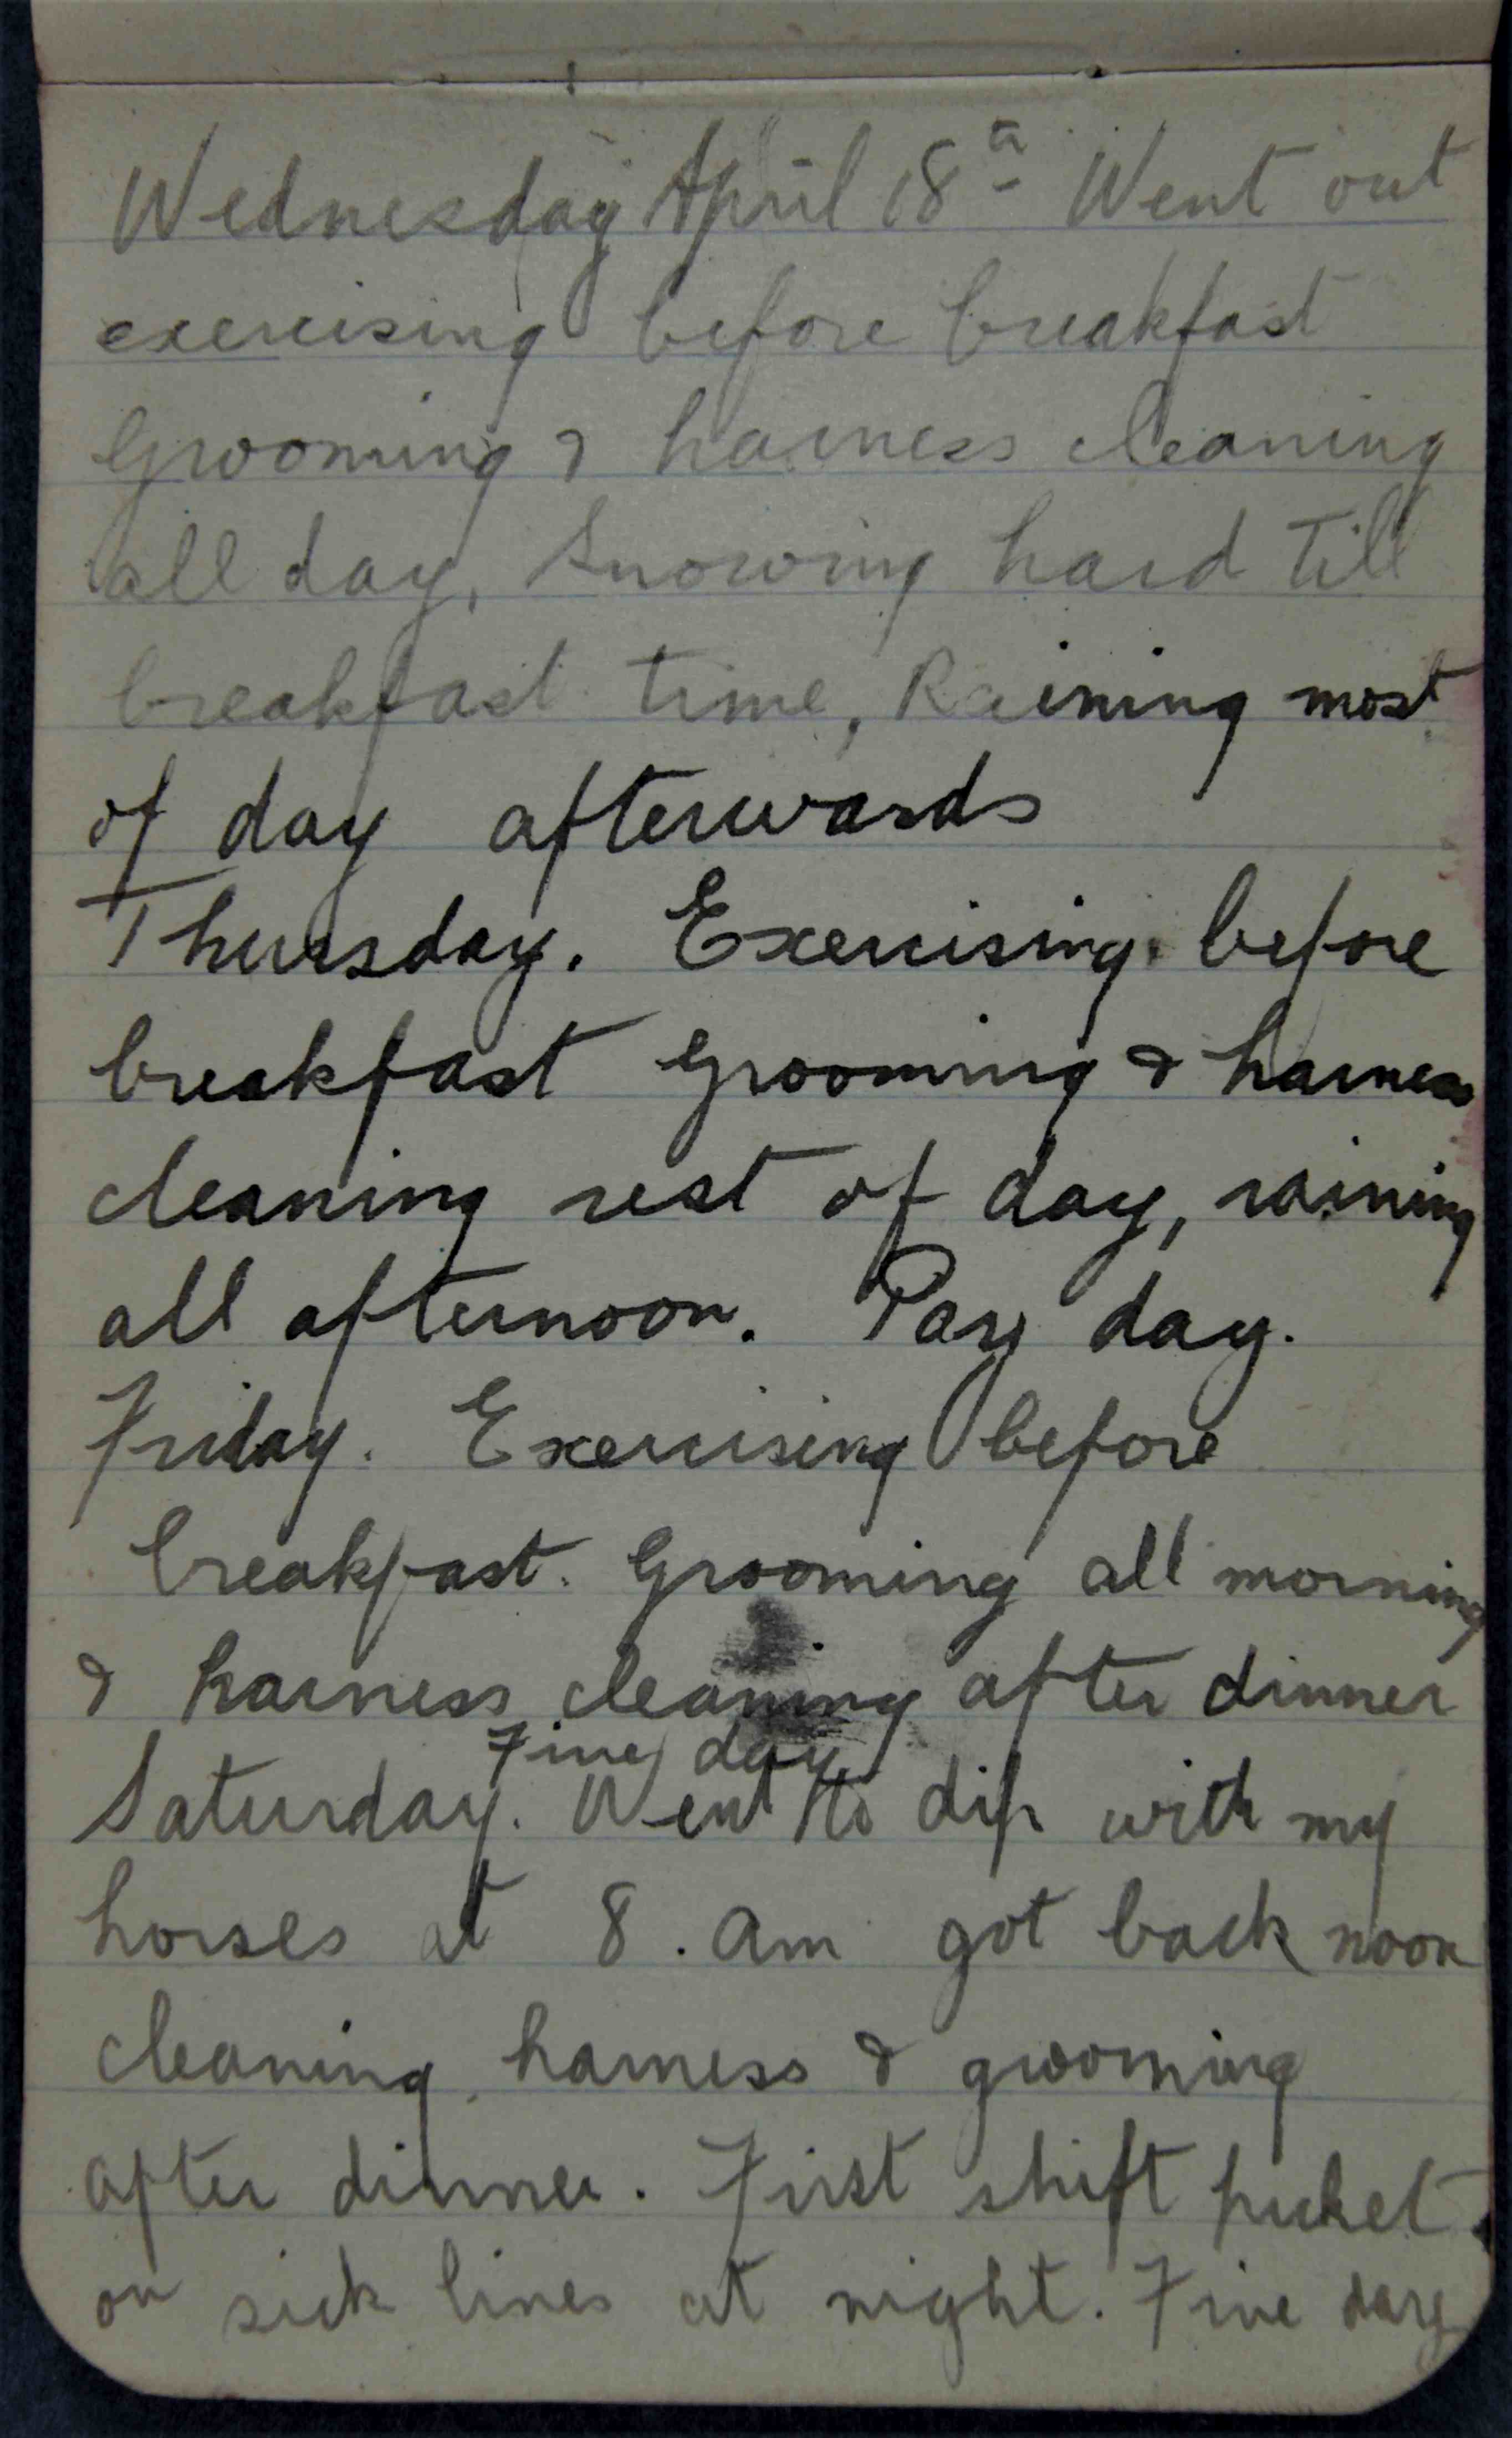 Wednesday April 18th Went out
exercising before breakfast
Grooming & harness cleaning
all day, Snowing hard Till
breakfast time, Raining most
of day afterwards
Thursday. Exercising before
breakfast Grooming & harness
cleaning rest of day, raining
all afternoon. Pay day.
Friday. Exercising before
breakfast. Grooming all morning
& harness cleaning after dinner
Fine day
Saturday. Went to dip with my
horses at 8. am got back noon
cleaning harness & grooming
after dinner. First shift picket
on sick lines at night. Fine day